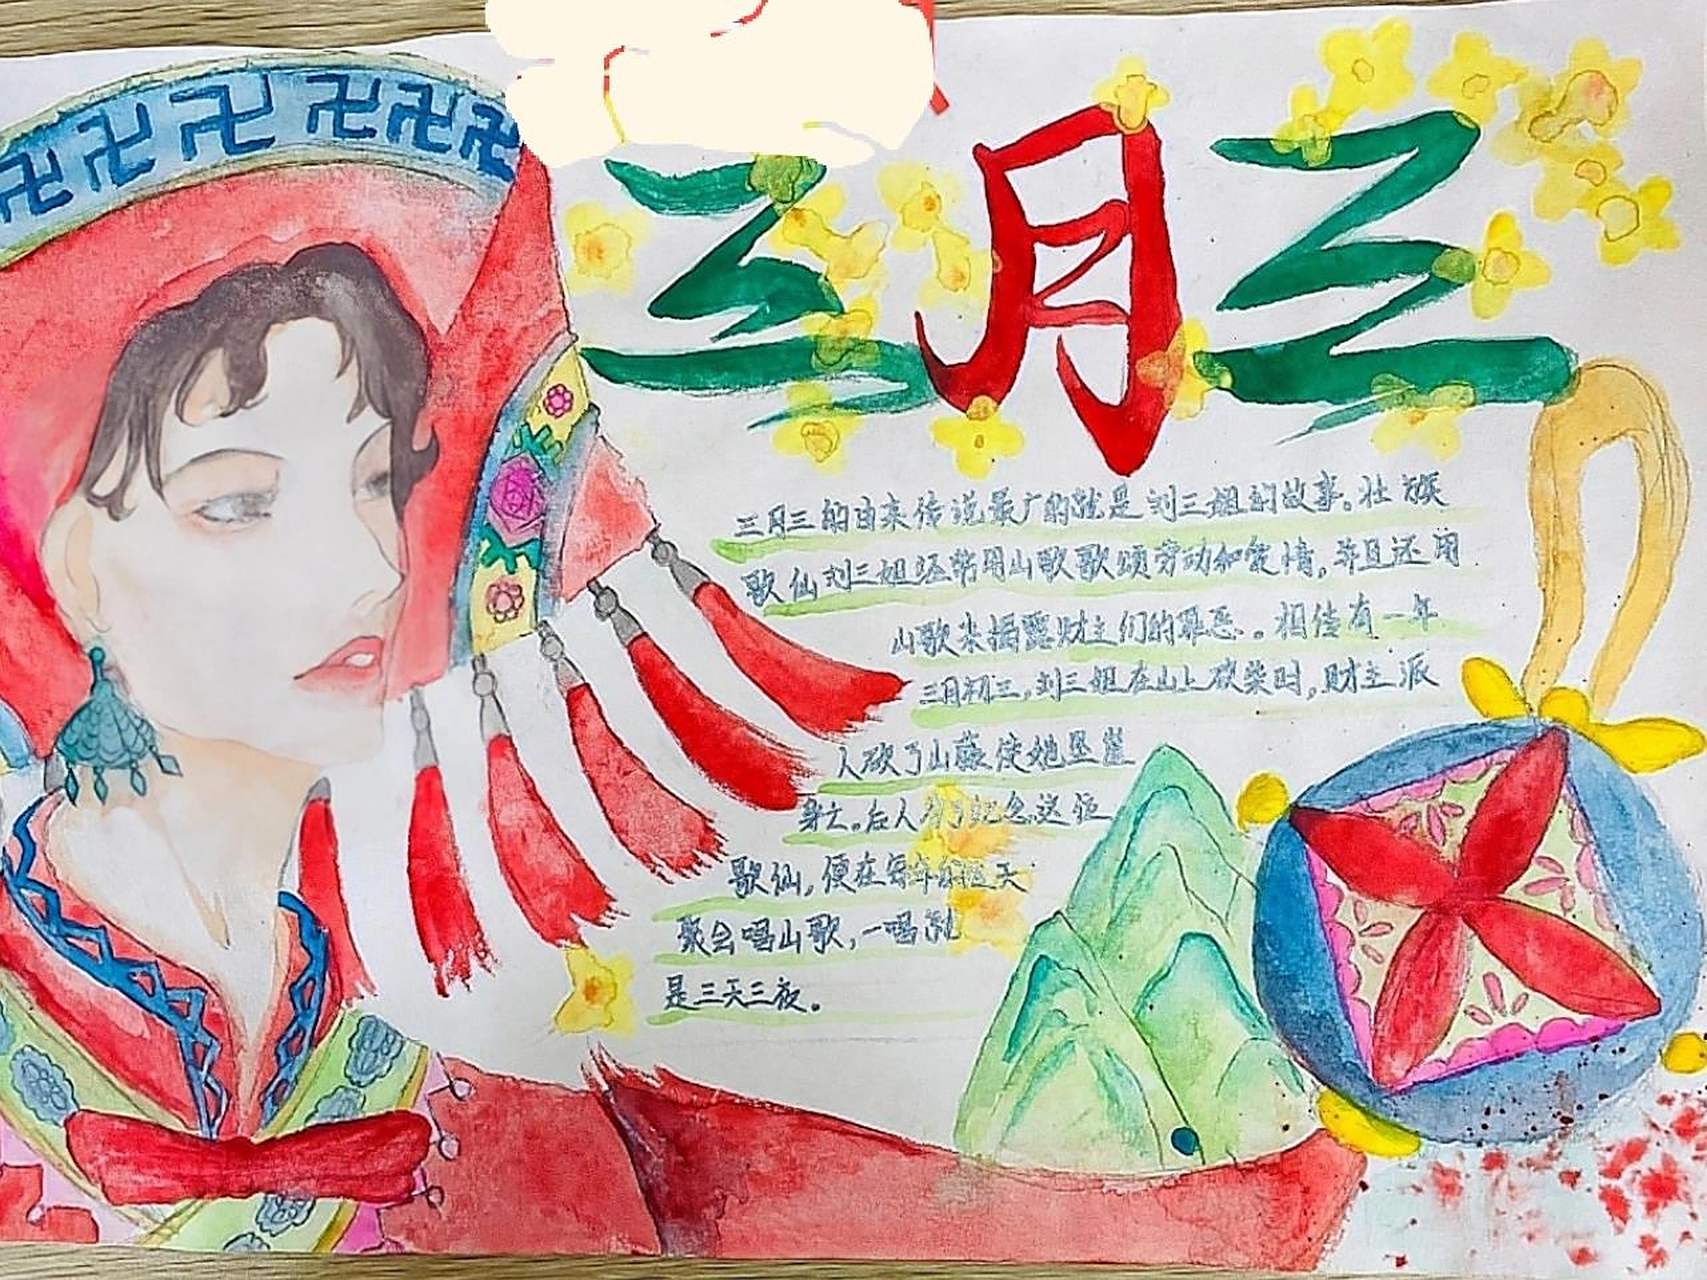 三月三
三月三的由来传说最广的就是刘三姐的故事。壮族
歌仙刘三姐经常用山歌歌颂劳动和爱情，并且还用
山歌来揭露财主们的罪恶。相传有一年
三月初三，刘三姐在山上砍柴时，财主派
人砍了山藤使她坠崖
身亡。后人为了纪念这位
歌仙，便在每年的这天
聚会唱山歌，一唱就
是三天三夜。